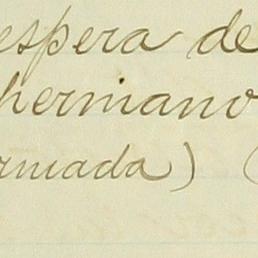 espera de
hermano
rmada) (